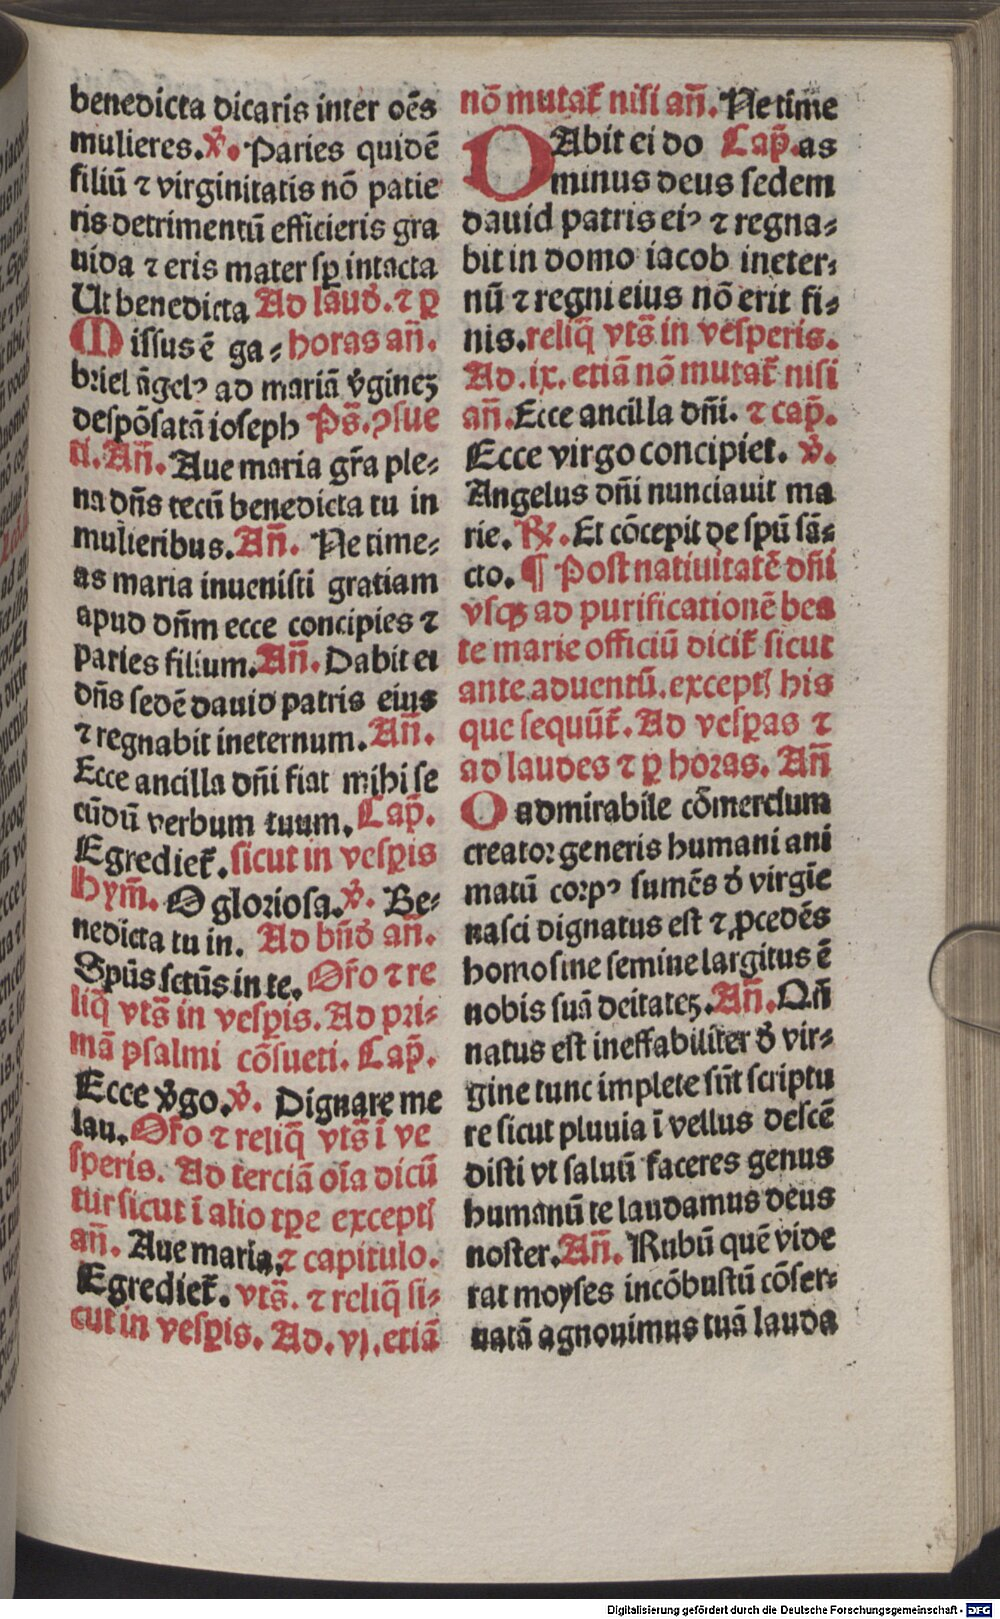 benedicta dicaris inter oēs
mulieres. ℣. Paries quidē
filiū ⁊ virginitatis nō patie
ris detrimentū efficieris gra
uida ⁊ eris mater sꝑ intacta
Ut benedicta Ad laud̄. ⁊ ꝑ
Missus ē ga- horas an̄.
briel āgelꝰ ad mariā v̄ginez
despōsatā ioseph Ps̄. ꝯsue
ti. An̄. Aue maria gr̄a ple-
na dn̄s tecū benedicta tu in
mulieribus. An̄. Ne time-
as maria inuenisti gratiam
apud dn̄m ecce concipies ⁊
paries filium. An̄. Dabit ei
dn̄s sedē dauid patris eius
⁊ regnabit ineternum. An̄.
Ecce ancilla dn̄i fiat mihi se
cūdū verbum tuum. Cap̄.
Egrediet̄. sicut in vesꝑis
Hym̄. O gloriosa. ℣. Be-
nedicta tu in. Ad bn̄d̄ an̄.
Spūs sctūs in te. Or̄o ⁊ re
liq̄ vts̄ in vesꝑis. Ad pri-
mā psalmi cōsueti. Cap̄.
Ecce v̄go. ℣. Dignare me
lau. Or̄o ⁊ reliq̄ vts̄ ī ve
speris. Ad terciā oīa dicū
tur sicut ī alio tꝑe except̄
an̄. Aue maria. ⁊ capitulo.
Egrediet̄. vts̄. ⁊ reliq̄ si-
cut in vesꝑis. Ad. vj. etiā
nō mutat̄ nisi an̄. Ne time
DAbit ei do Cap̄. as
minus deus sedem
dauid patris eiꝰ ⁊ regna-
bit in domo iacob ineter-
nū ⁊ regni eius nō erit fi-
nis. reliq̄ vts̄ in vesperis.
Ad. ix. etiā nō mutat̄ nisi
an̄. Ecce ancilla dn̄i. ⁊ cap̄.
Ecce virgo concipiet. ℣.
Angelus dn̄i nunciauit ma
rie. ℟. Et cōcepit de spū sā-
cto. ¶ Post natiuitatē dn̄i
vsqꝫ ad purificationē bea
te marie officiū dicit̄ sicut
ante aduentū. except̄ his
que sequūt̄. Ad vesꝑas ⁊
ad laudes ⁊ ꝑ horas. An̄
O admirabile cōmercium
creator generis humani ani
matū corpꝰ sumēs d̄ virgīe
nasci dignatus est ⁊ ꝓcedēs
homo sine semine largitus ē
nobis suā deitatez. An̄. Qn̄
natus est ineffabiliter d̄ vir-
gine tunc implete sūt scriptu
re sicut pluuia ī vellus descē
disti vt saluū faceres genus
humanū te laudamus deus
noster. An̄. Rubū quē vide
rat moyses incōbustū cōser-
uatā agnouimus tuā lauda
Digitalisierung gefördert durch die Deutsche Forschungsgemeinschaft - DFG